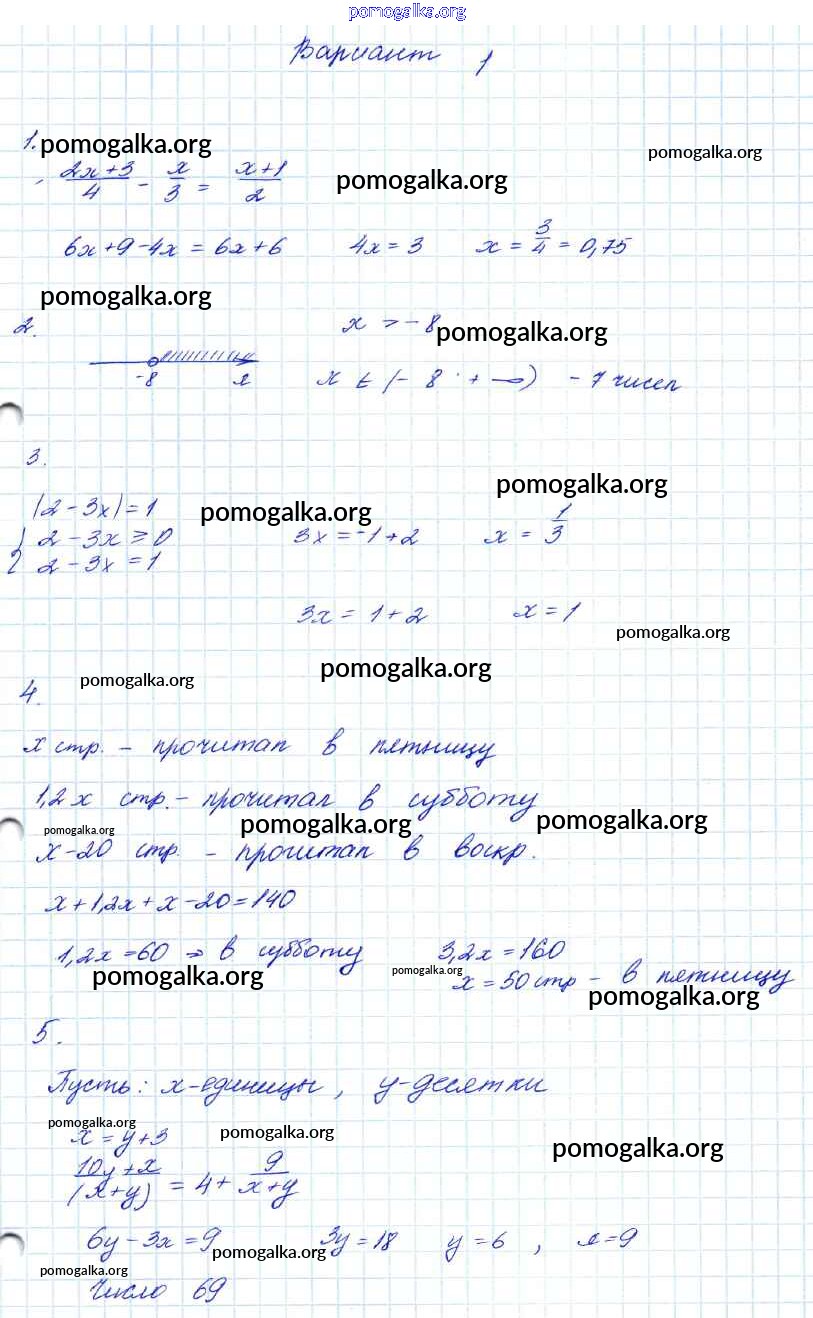 pomogalka.org
Вариант 1
1. pomogalka.org pomogalka.org
(2x+3)/4 - x/3 = (x+1)/2 pomogalka.org
6x+9-4x = 6x+6 4x = 3 x = 3/4 = 0,75
pomogalka.org
2. x > -8 pomogalka.org
-8 x x ∈ (-8; +∞) - 7 чисел
3.
pomogalka.org
|2-3x|=1 pomogalka.org
{ 2-3x ≥ 0 3x = -1+2 x = 1/3
2-3x = 1
3x = 1+2 x = 1
pomogalka.org
4. pomogalka.org pomogalka.org
x стр. - прочитал в пятницу
1,2x стр. - прочитал в субботу
pomogalka.org pomogalka.org pomogalka.org
x-20 стр. - прочитал в воскр.
x+1,2x+x-20=140
1,2x=60 ⇒ в субботу 3,2x=160
pomogalka.org pomogalka.org x = 50 стр - в пятницу
pomogalka.org
5.
Пусть: x-единицы, y-десятки
pomogalka.org pomogalka.org
x = y+3 pomogalka.org
(10y+x)/(x+y) = 4 + 9/(x+y)
6y-3x=9 3y=18 y=6, x=9
pomogalka.org
pomogalka.org
Число 69